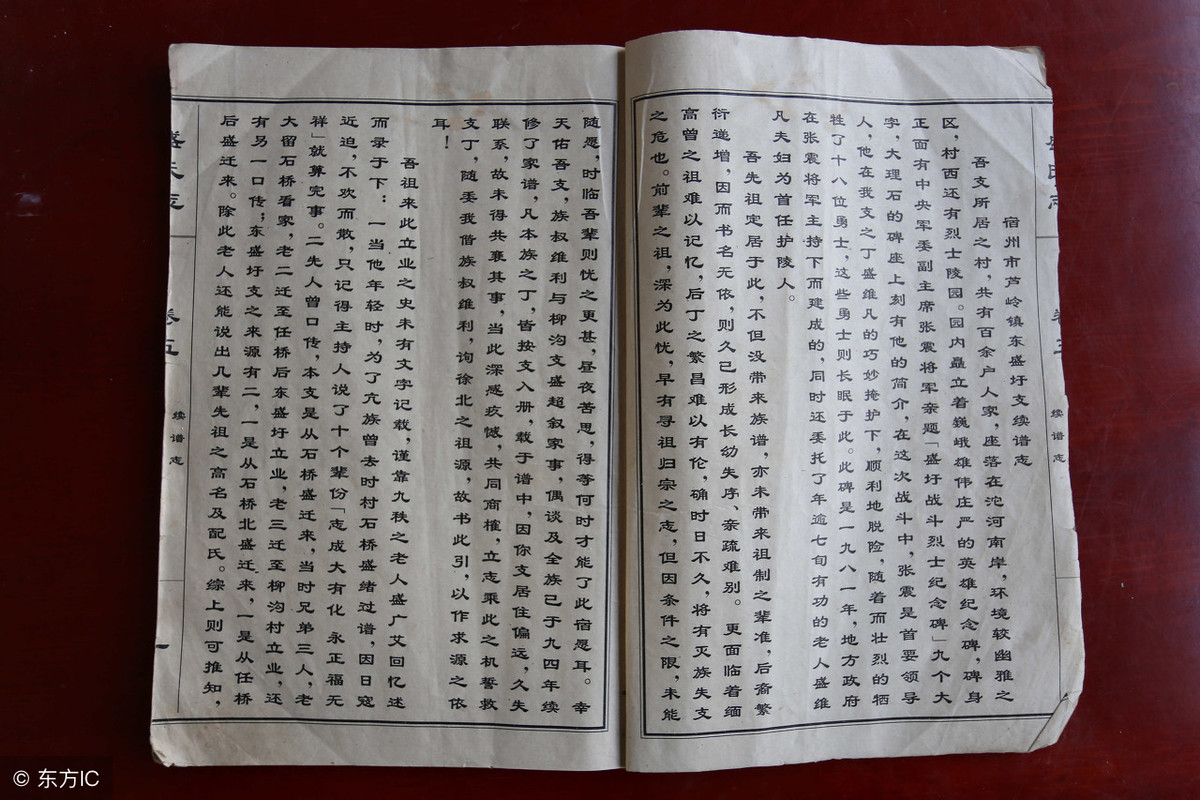 宿州市芦岭镇东盛圩支续谱志
吾支所居之村，共有百余户人家，座落在沱河南岸，环境较幽雅之
区，村西还有烈士陵园。园内矗立着巍峨雄伟庄严的英雄纪念碑，碑身
正面有中央军委副主席张震将军亲题「盛圩战斗烈士纪念碑」九个大
字，大理石的碑座上刻有他的简介，在这次战斗中，张震是首要领导
人，他在我支之丁盛维凡的巧妙掩护下，顺利地脱险，随着而壮烈的牺
牲了十八位勇士，这些勇士则长眠于此。此碑是一九八一年，地方政府
在张震将军主持下而建成的，同时还委托了年逾七旬有功的老人盛维
凡夫妇为首任护陵人。
吾先祖定居于此，不但没带来族谱，亦未带来祖制之辈准，后裔繁
衍递增，因而书名无依，则久已形成长幼失序、亲疏难别。更面临着缅
高曾之祖难以记忆，后丁之繁昌难以有伦，确时日不久，将有灭族失支
之危也。前辈之祖，深为此忧，早有寻祖归宗之志，但因条件之限，未能
续谱志
随愿，时临吾辈则忧之更甚，昼夜苦思，得等何时才能了此宿愿耳。幸
天佑吾支，族叔维利与柳沟支盛超叙家事，偶谈及全族已于九四年续
修了家谱，凡本族之丁，皆按支入册，载于谱中，因你支居住偏远，久失
联系，故未得共襄其事，当此深感疚憾，共同商榷，立志乘此之机誓救
支丁，随委我偕族叔维利，询徐北之祖源，故书此引，以作求源之依
耳！
吾祖来此立业之史未有文字记载，谨靠九秩之老人盛广艾回忆述
而录于下：一当他年轻时，为了亢族曾去时村石桥盛绪过谱，因日寇
近迫，不欢而散，只记得主持人说了十个辈份「志成大有化 永正福无
祥」就算完事。二先人曾口传，本支是从石桥盛迁来，当时兄弟三人，老
大留石桥看家，老二迁至任桥后东盛圩立业，老三迁至柳沟村立业，还
有另一口传；东盛圩支之来源有二，一是从石桥北盛迁来，一是从任桥
后盛迁来。除此老人还能说出几辈先祖之高名及配氏。综上则可推知，
盛氏志
卷五
续谱志
一
© 东方IC